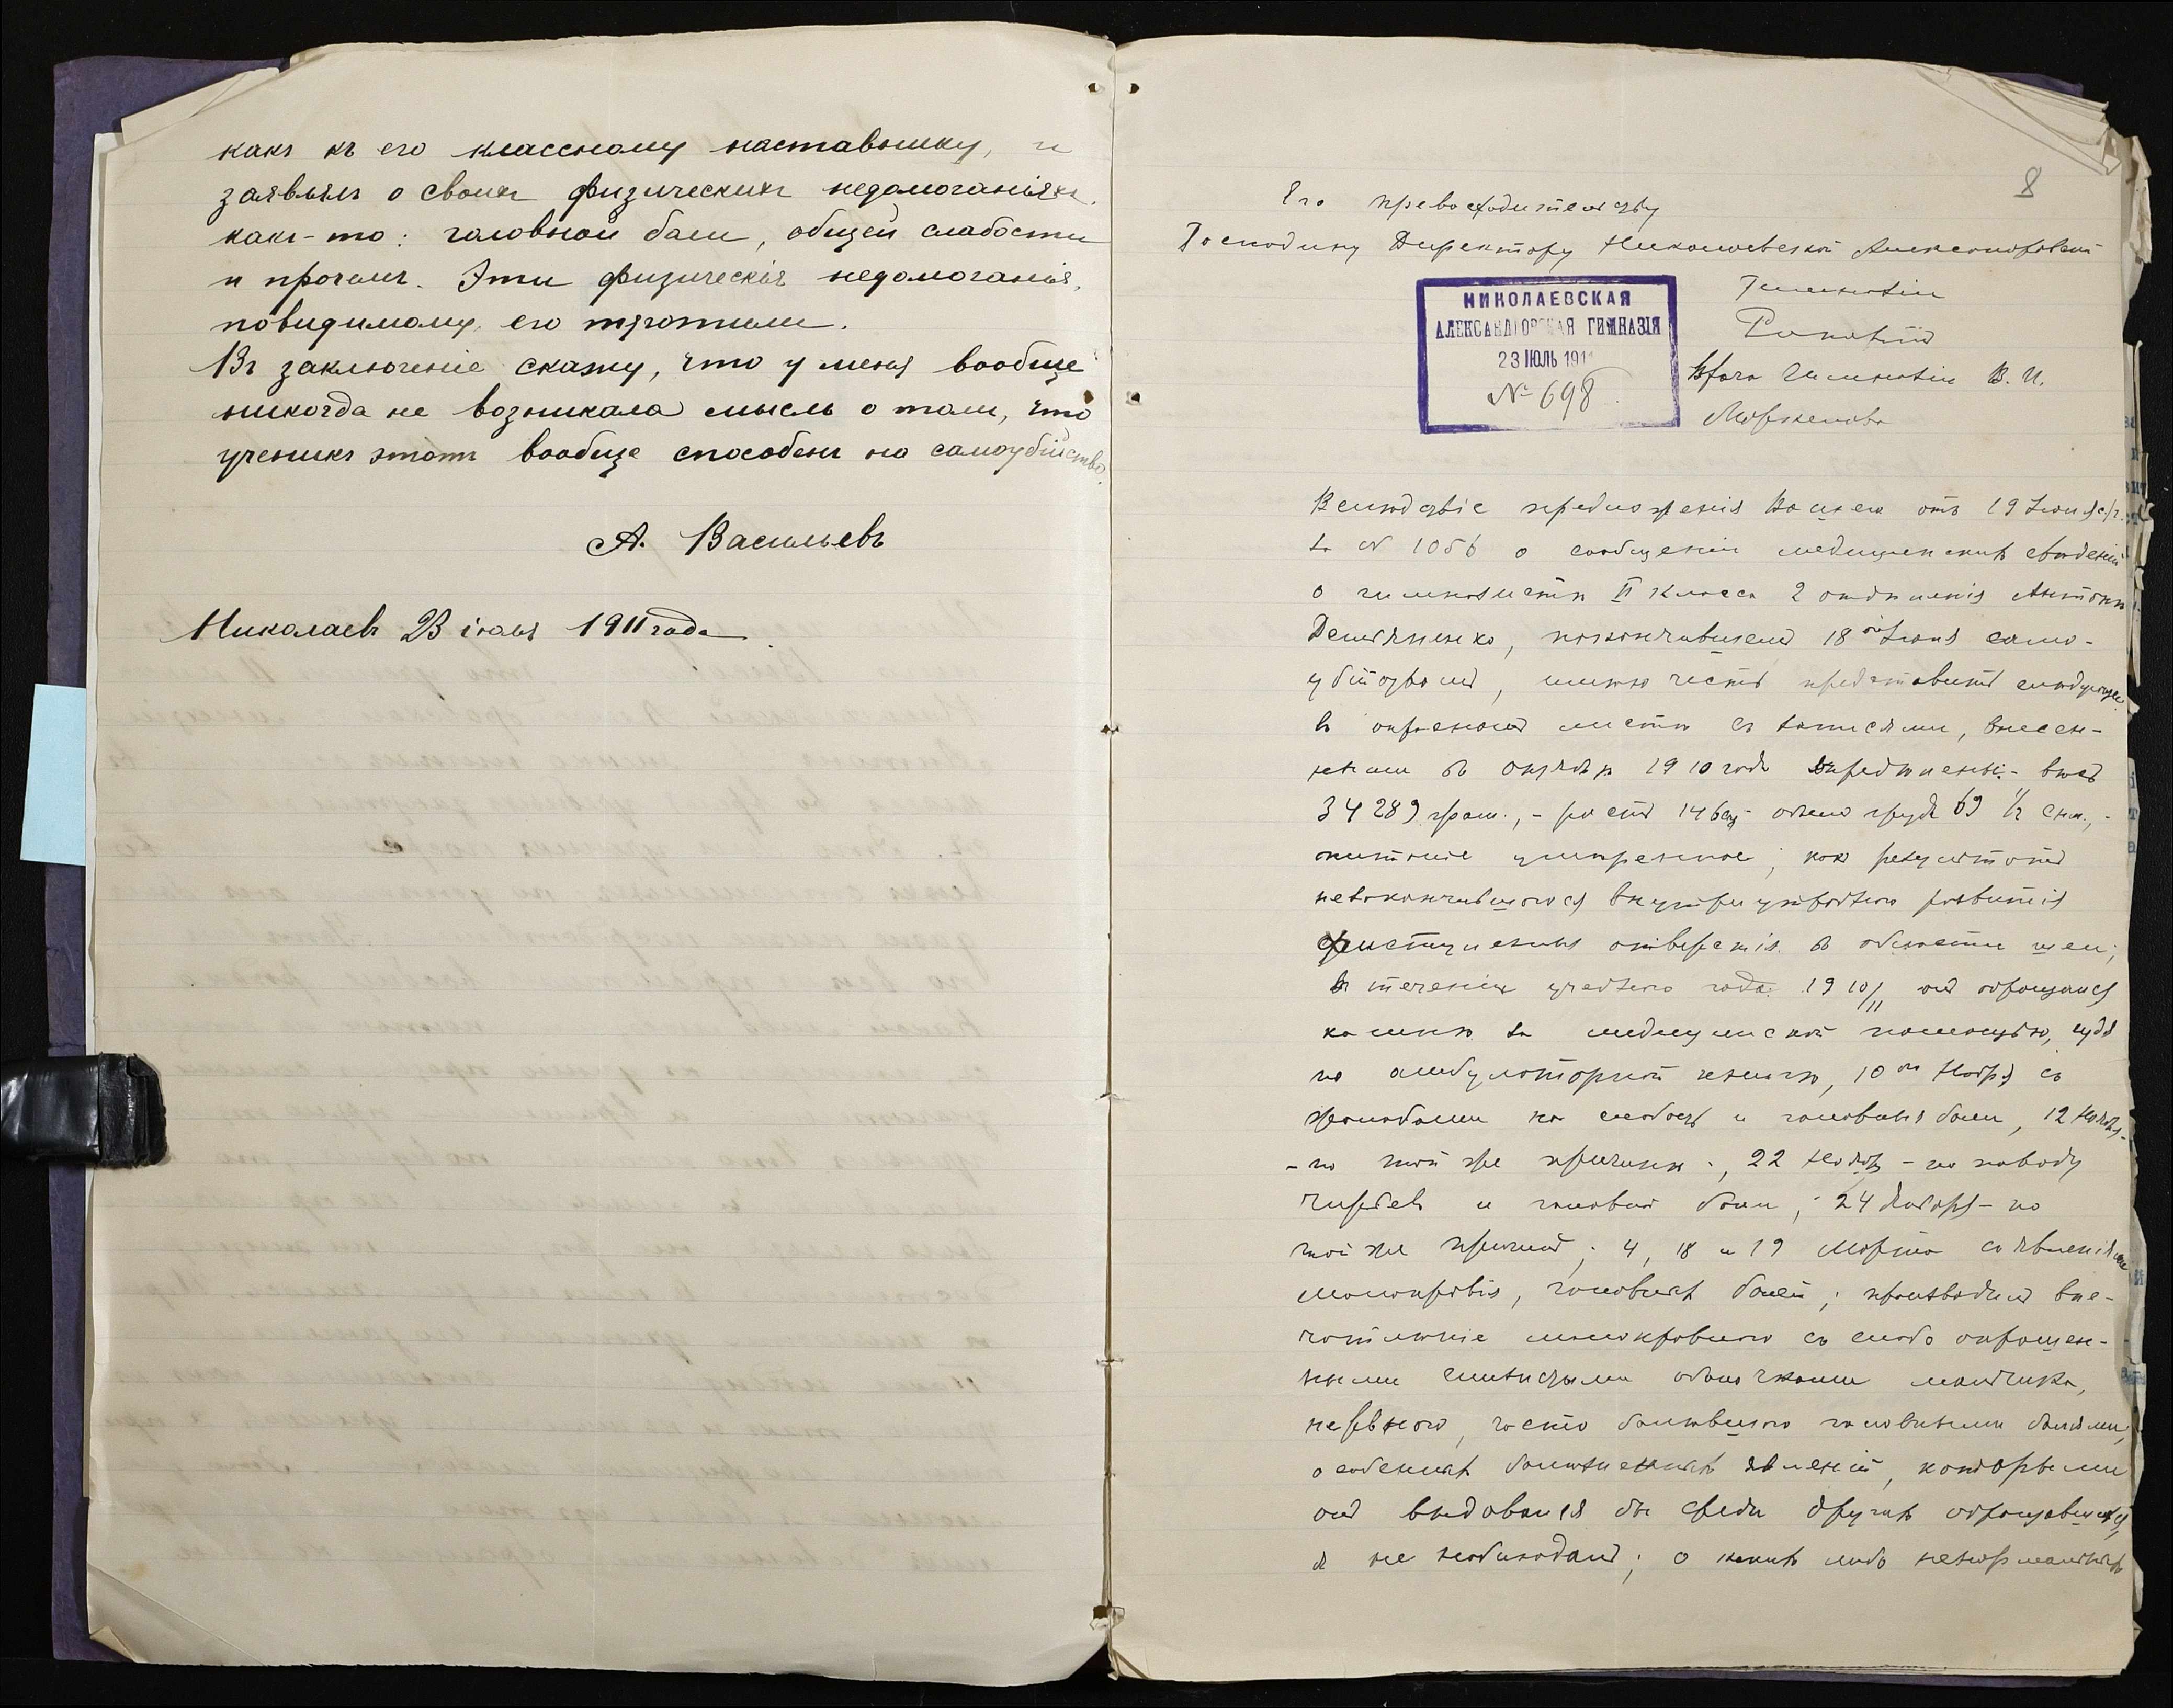 какъ къ его классному наставнику, и
заявилъ о своихъ физическихъ недомоганіяхъ,
какъ-то: головной боли, общей слабости
и прочемъ. Эти физическія недомоганія,
повидимому, его тяготили.
Въ заключеніе скажу, что у меня вообще
никогда не возникала мысль о томъ, что
ученикъ этотъ вообще способенъ на самоубійство.
А. Васильевъ
Николаевъ 23 іюля 1911 года
8
Его превосходительству
Господину Директору Николаевской Александровской
Гимназіи
НИКОЛАЕВСКАЯ
АЛЕКСАНДРОВСКАЯ ГИМНАЗІЯ
23 ІЮЛЬ 1911
№ 698
Врача Гимназіи В. И.
Вслѣдствіе предложенія Вашего отъ 19 Іюля с/г.
за № 1056 о сообщеніи медицинскихъ свѣденій
о гимназистѣ II класса 2 отдѣленія Антонѣ
Демьяненко, покончившемъ 18го Іюля само-
убійствомъ, имѣю честь представить слѣдующее:
въ опросномъ листѣ съ записями, внесен-
ными въ октябрѣ 1910 года опредѣлены:- вѣсъ
34289 грам., - ростъ 146 - объемъ груди 69 1/2 снт.,-
питаніе умѣренное; какъ результатъ
незакончившагося внутриутробнаго развитія
фистулезныя отверстія въ области шеи;
въ теченіи учебнаго года 1910/11 онъ обращался
ко мнѣ за медицинской помощью, судя
по амбулаторной книгѣ, 10го Ноября съ
жалобами на слабость и головныя боли, 12 Ноября-
-по той же причинѣ;, 22 Ноября - по поводу
чирьевъ и головной боли; 24 Января - по
той же причинѣ; 4, 18 и 19 Марта съ явленіями
малокровія, головныхъ болей; производилъ впе-
чатлѣніе малокровнаго съ слабо окрашен-
ными слизистыми оболочками мальчика,
нервнаго, часто болѣвшаго головными болями;
особенныхъ болѣзненныхъ явленій, которыми
онъ выдавался бы среди другихъ обращавшихся,
я не наблюдалъ; о какихъ либо ненормальныхъ